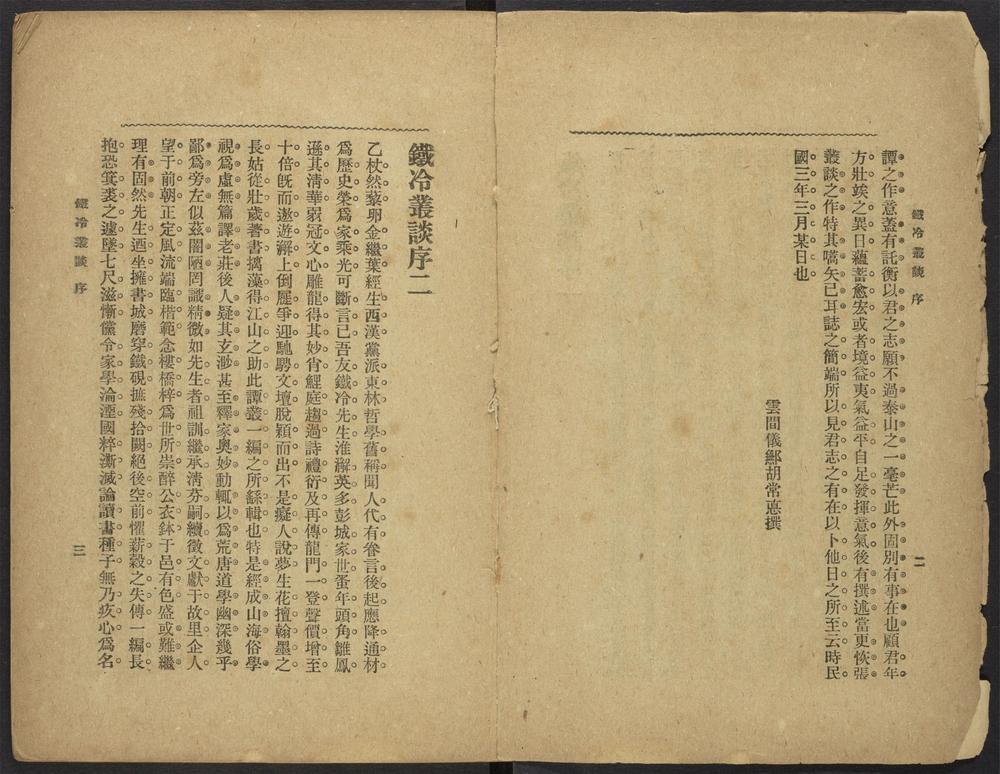 鐵冷叢談 序
二
譚之作意蓋有託衡以君之志願不過泰山之一毫芒此外固別有事在也顧君年
方壯埃之異日蘊蓄愈宏或者境益夷氣益平自足發揮意氣後有撰述當更恢張
叢談之作特其嚆矢已耳誌之簡端所以見君志之有在以卜他日之所至云時民
國三年三月某日也
雲間儀鄦胡常悳撰
鐵冷叢談序二
乙杖然藜卯金繼葉經生西漢黨派東林哲學舊稱聞人代有昝言後起應降通材
爲歷史榮爲家乘光可斷言已吾友鐵冷先生淮澥英多彭城家世蚤年頭角雛鳳
遜其清華弱冠文心雕龍得其妙肖鯉庭趨過詩禮衍及再傳龍門一登聲價增至
十倍旣而遨遊澥上倒屣爭迎馳騁文壇脫穎而出不是癡人說夢生花擅翰墨之
長姑從壯歲著書摛藻得江山之助此譚叢一編之所繇輯也特是經成山海俗學
視爲虛無篇譯老莊後人疑其玄渺甚至釋家奧妙動輒以爲荒唐道學幽深幾乎
鄙爲旁左似茲闇陋罔識精微如先生者祖訓繼承淸芬嗣續徵文獻于故里企人
望于前朝正定風流端臨楷範念樓橋梓爲世所崇醉公衣鉢于邑有色盛或難繼
理有固然先生迺坐擁書城磨穿鐵硯摭殘拾闕絕後空前懼薪縠之失傳一編長
抱恐箕裘之遽墜七尺滋慚儻令家學淪湮國粹澌滅論讀書種子無乃疚心爲名
鐵冷叢談 序
三